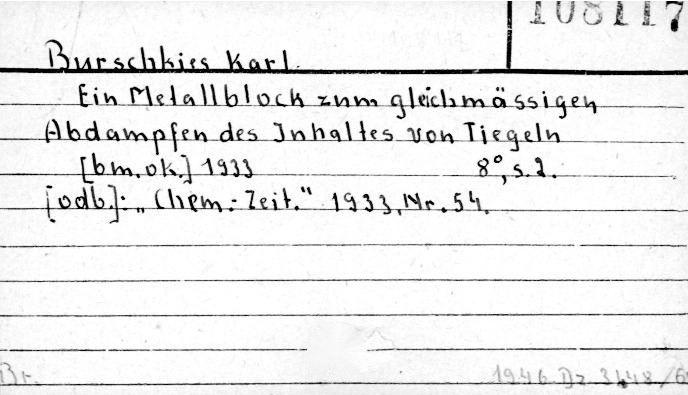 108117
Burschkies Karl.
Ein Metallblock zum gleichmässigen
Abdampfen des Inhaltes von Tiegeln
[bm. ok.] 1933 8°, s. 2.
[odb.]: „Chem.-Zeit." 1933, Nr. 54.
Br. 1946 Dz. 3148/6